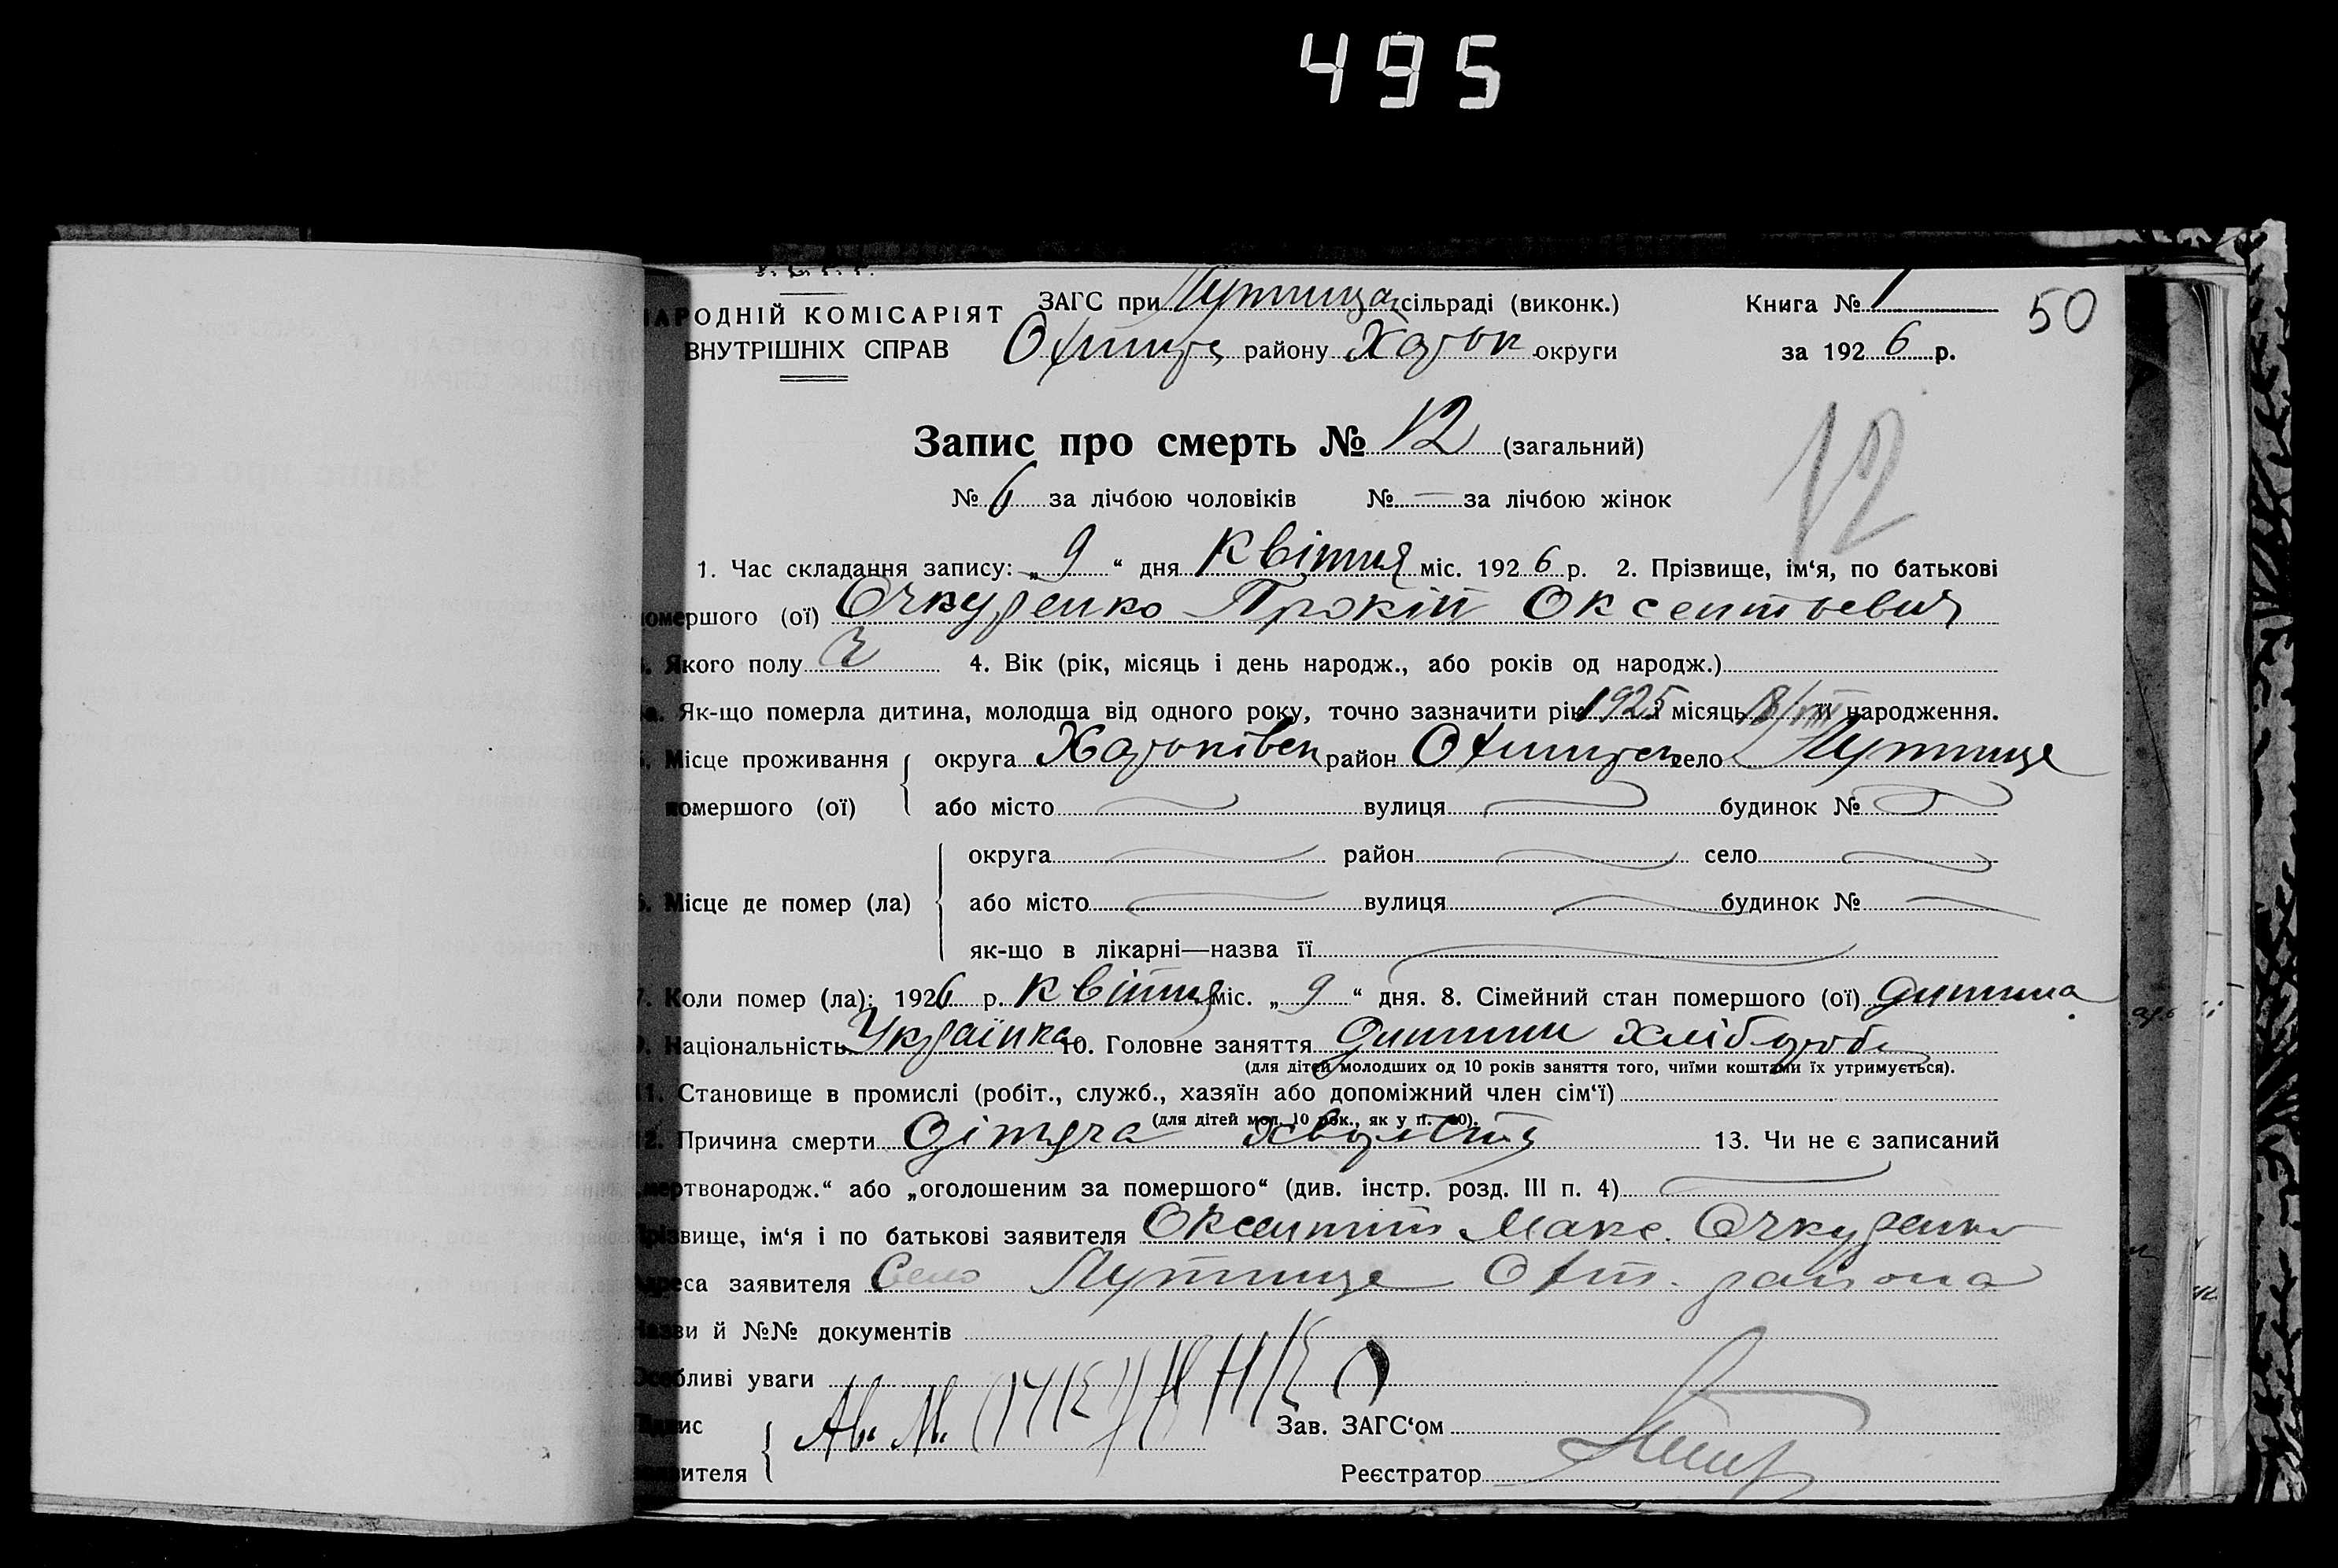 495
НАРОДНІЙ КОМІСАРІЯТ
ВНУТРІШНІХ СПРАВ
ЗАГС при Лутища сільраді (виконк.)
району Харьк округи
Книга № 1
за 1926 р.
50
Запис про смерть № 12 (загальний)
12
№ 6 за лічбою чоловіків № — за лічбою жінок
1. Час складання запису: „ 9 “ дня Квітня міс. 1926 р. 2. Прізвище, ім‘я, по батькові
помершого (ої) Очкуренко Прокіп Оксентьевич
Якого полу Ч 4. Вік (рік, місяць і день народж., або років од народж.)
Як-що померла дитина, молодша від одного року, точно зазначити рік 1925 місяць народження.
Місце проживання помершого (ої) округа Харьківск район село Лутище
або місто вулиця будинок №
6. Місце де помер (ла) округа район село
або місто вулиця будинок №
як-що в лікарні—назва її
7. Коли помер (ла): 1926 р. Квітня міс. „ 9 “ дня. 8. Сімейний стан помершого (ої) дитина
9. Національність Українка 10. Головне заняття дитини хлібороба
(для дітей молодших од 10 років заняття того, чиїми коштами їх утримується).
11. Становище в промислі (робіт., служб., хазяїн або допоміжний член сім‘ї)
(для дітей мол. 10 рок., як у п. 10).
12. Причина смерти Дітяча 13. Чи не є записаний
„мертвонародж.“ або „оголошеним за помершого“ (див. інстр. розд. III п. 4)
Прізвище, ім‘я і по батькові заявителя Оксентій Макс. Очкуренко
Адреса заявителя Село Лутище Охт. района
Назви й №№ документів
Особливі уваги
Підпис заявителя
Зав. ЗАГС‘ом
Реєстратор